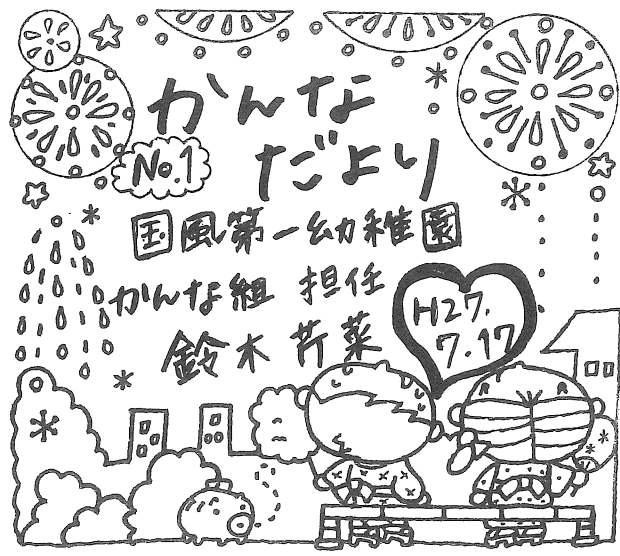 かんな
だより
No.1
国風第一幼稚園
かんな組 担任
鈴木 芹菜
H27.
7.17